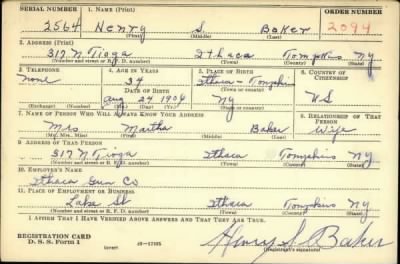 SERIAL NUMBER 1. NAME (Print) ORDER NUMBER
2564 Henry S. Baker 2094
(First) (Middle) (Last)
2. ADDRESS (Print)
317 N Tioga Ithaca Tompkins NY
(Number and street or R. F. D. number) (Town) (County) (State)
3. TELEPHONE 4. AGE IN YEARS 5. PLACE OF BIRTH 6. COUNTRY OF CITIZENSHIP
None 34 Ithaca - Tompkins
DATE OF BIRTH (Town or county)
Aug 24 1906 NY US
(Exchange) (Number) (Mo.) (Day) (Yr.) (State or country)
7. NAME OF PERSON WHO WILL ALWAYS KNOW YOUR ADDRESS 8. RELATIONSHIP OF THAT PERSON
Mrs Martha Baker Wife
(Mr., Mrs., Miss) (First) (Middle) (Last)
9. ADDRESS OF THAT PERSON
317 N Tioga Ithaca Tompkins NY
(Number and street or R. F. D. number) (Town) (County) (State)
10. EMPLOYER'S NAME
Ithaca Gun Co
11. PLACE OF EMPLOYMENT OR BUSINESS
Lake St Ithaca Tompkins NY
(Number and street or R. F. D. number) (Town) (County) (State)
I AFFIRM THAT I HAVE VERIFIED ABOVE ANSWERS AND THAT THEY ARE TRUE.
REGISTRATION CARD
D. S. S. Form 1 (over) 16-17105 Henry S. Baker
(Registrant's signature)